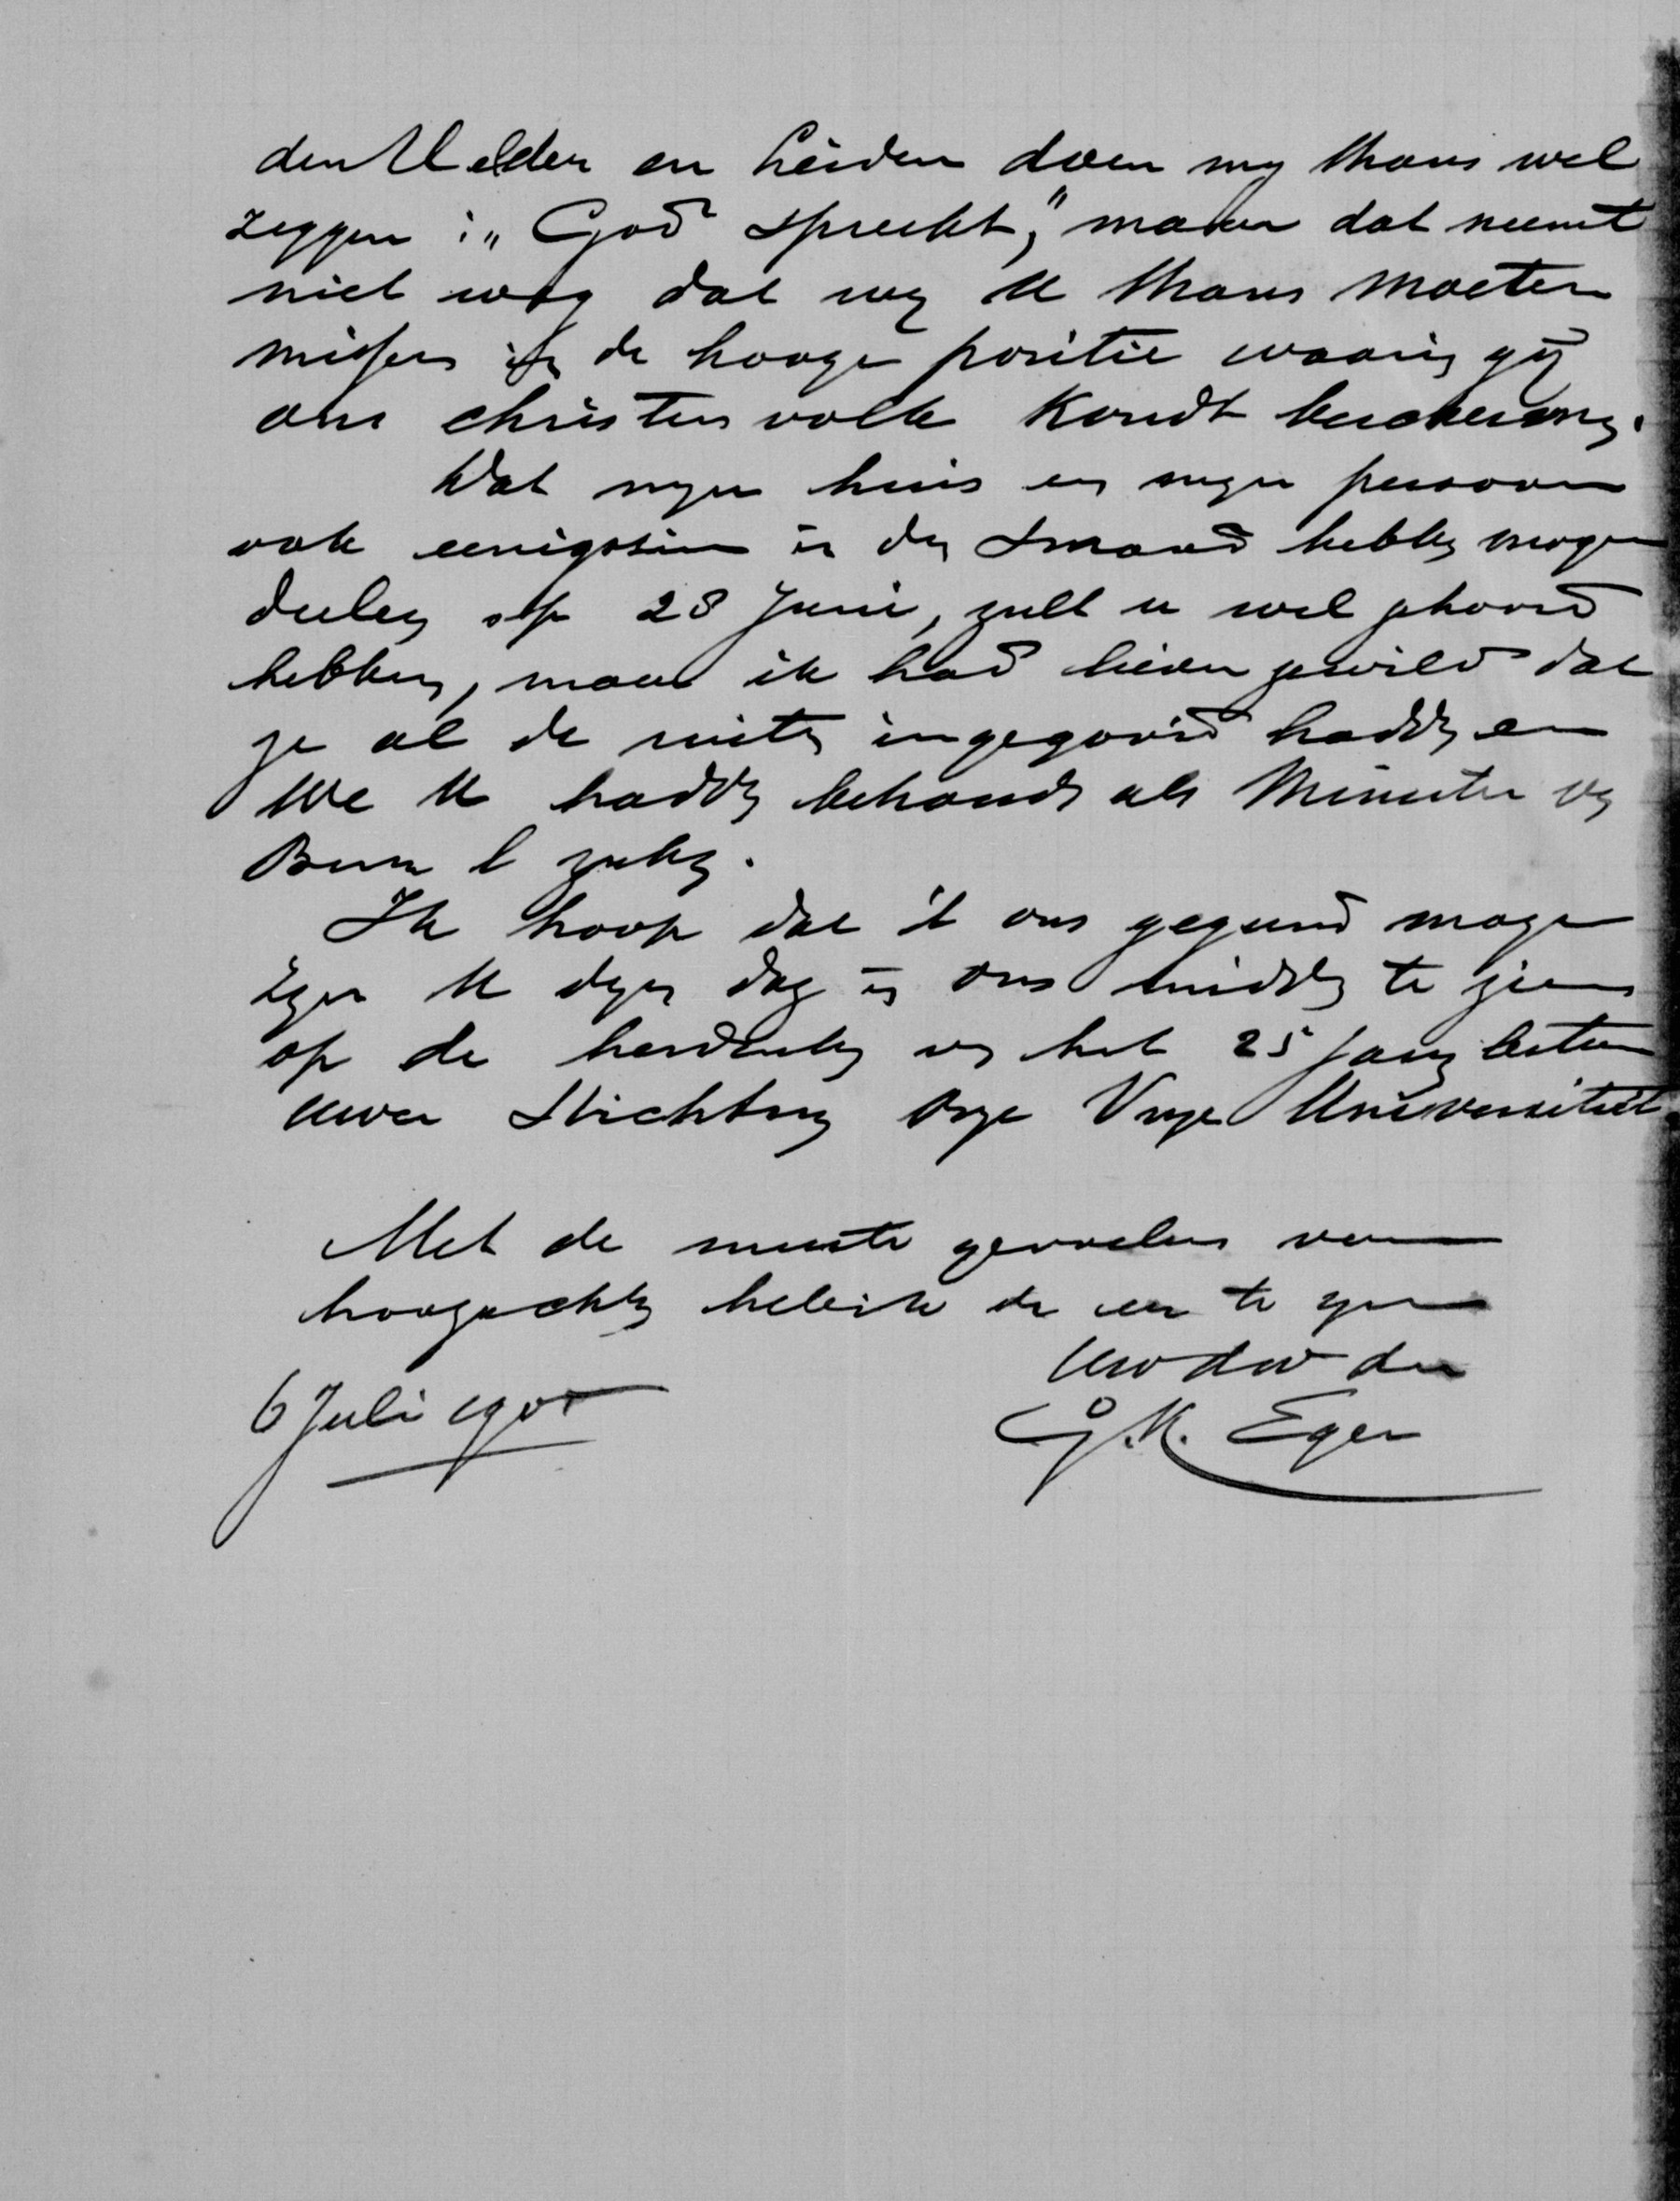 den Helder en Leiden doen my thans wel
zeggen : „God spreekt," maar dat neemt
niet weg dat wy U thans moeten
missen in de hooge positie waarin gij
ons christenvolk kondt
Wat myn huis en myn persoon
ook eenigszins in den smaad hebben mogen
deelen op 28 Juni, zult u wel gehoord
hebben, maar ik had liever gewild dat
ze al de ruiten ingegooid hadden en
we U hadden behouden als Minister van
Binn l zaken.
Ik hoop dat 't ons gegund moge
zyn U dezen dag in ons midden te zien
op de herdenking van het 25 jarig bestaan
uwer Stichting onze Vrije Universiteit
Met de meeste gevoelens van
hoogachting heb ik de eer te zyn
Uw dw dr
6 Juli 1905
G.K. Eger